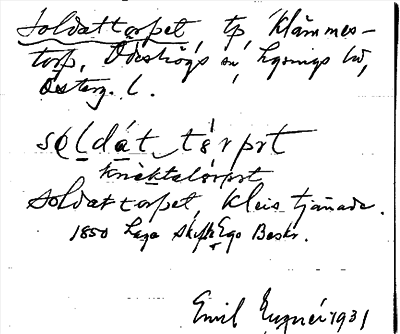 Soldattorpet, tp, Klämmes-
torp, Ödeshögs sn, Lysings hd,
Österg. l.
soldát tórpet
knektatorpet
Soldattorpet, Kleis tjänade.
1850 Laga Skifte Ego Beskr.
Emil 1931